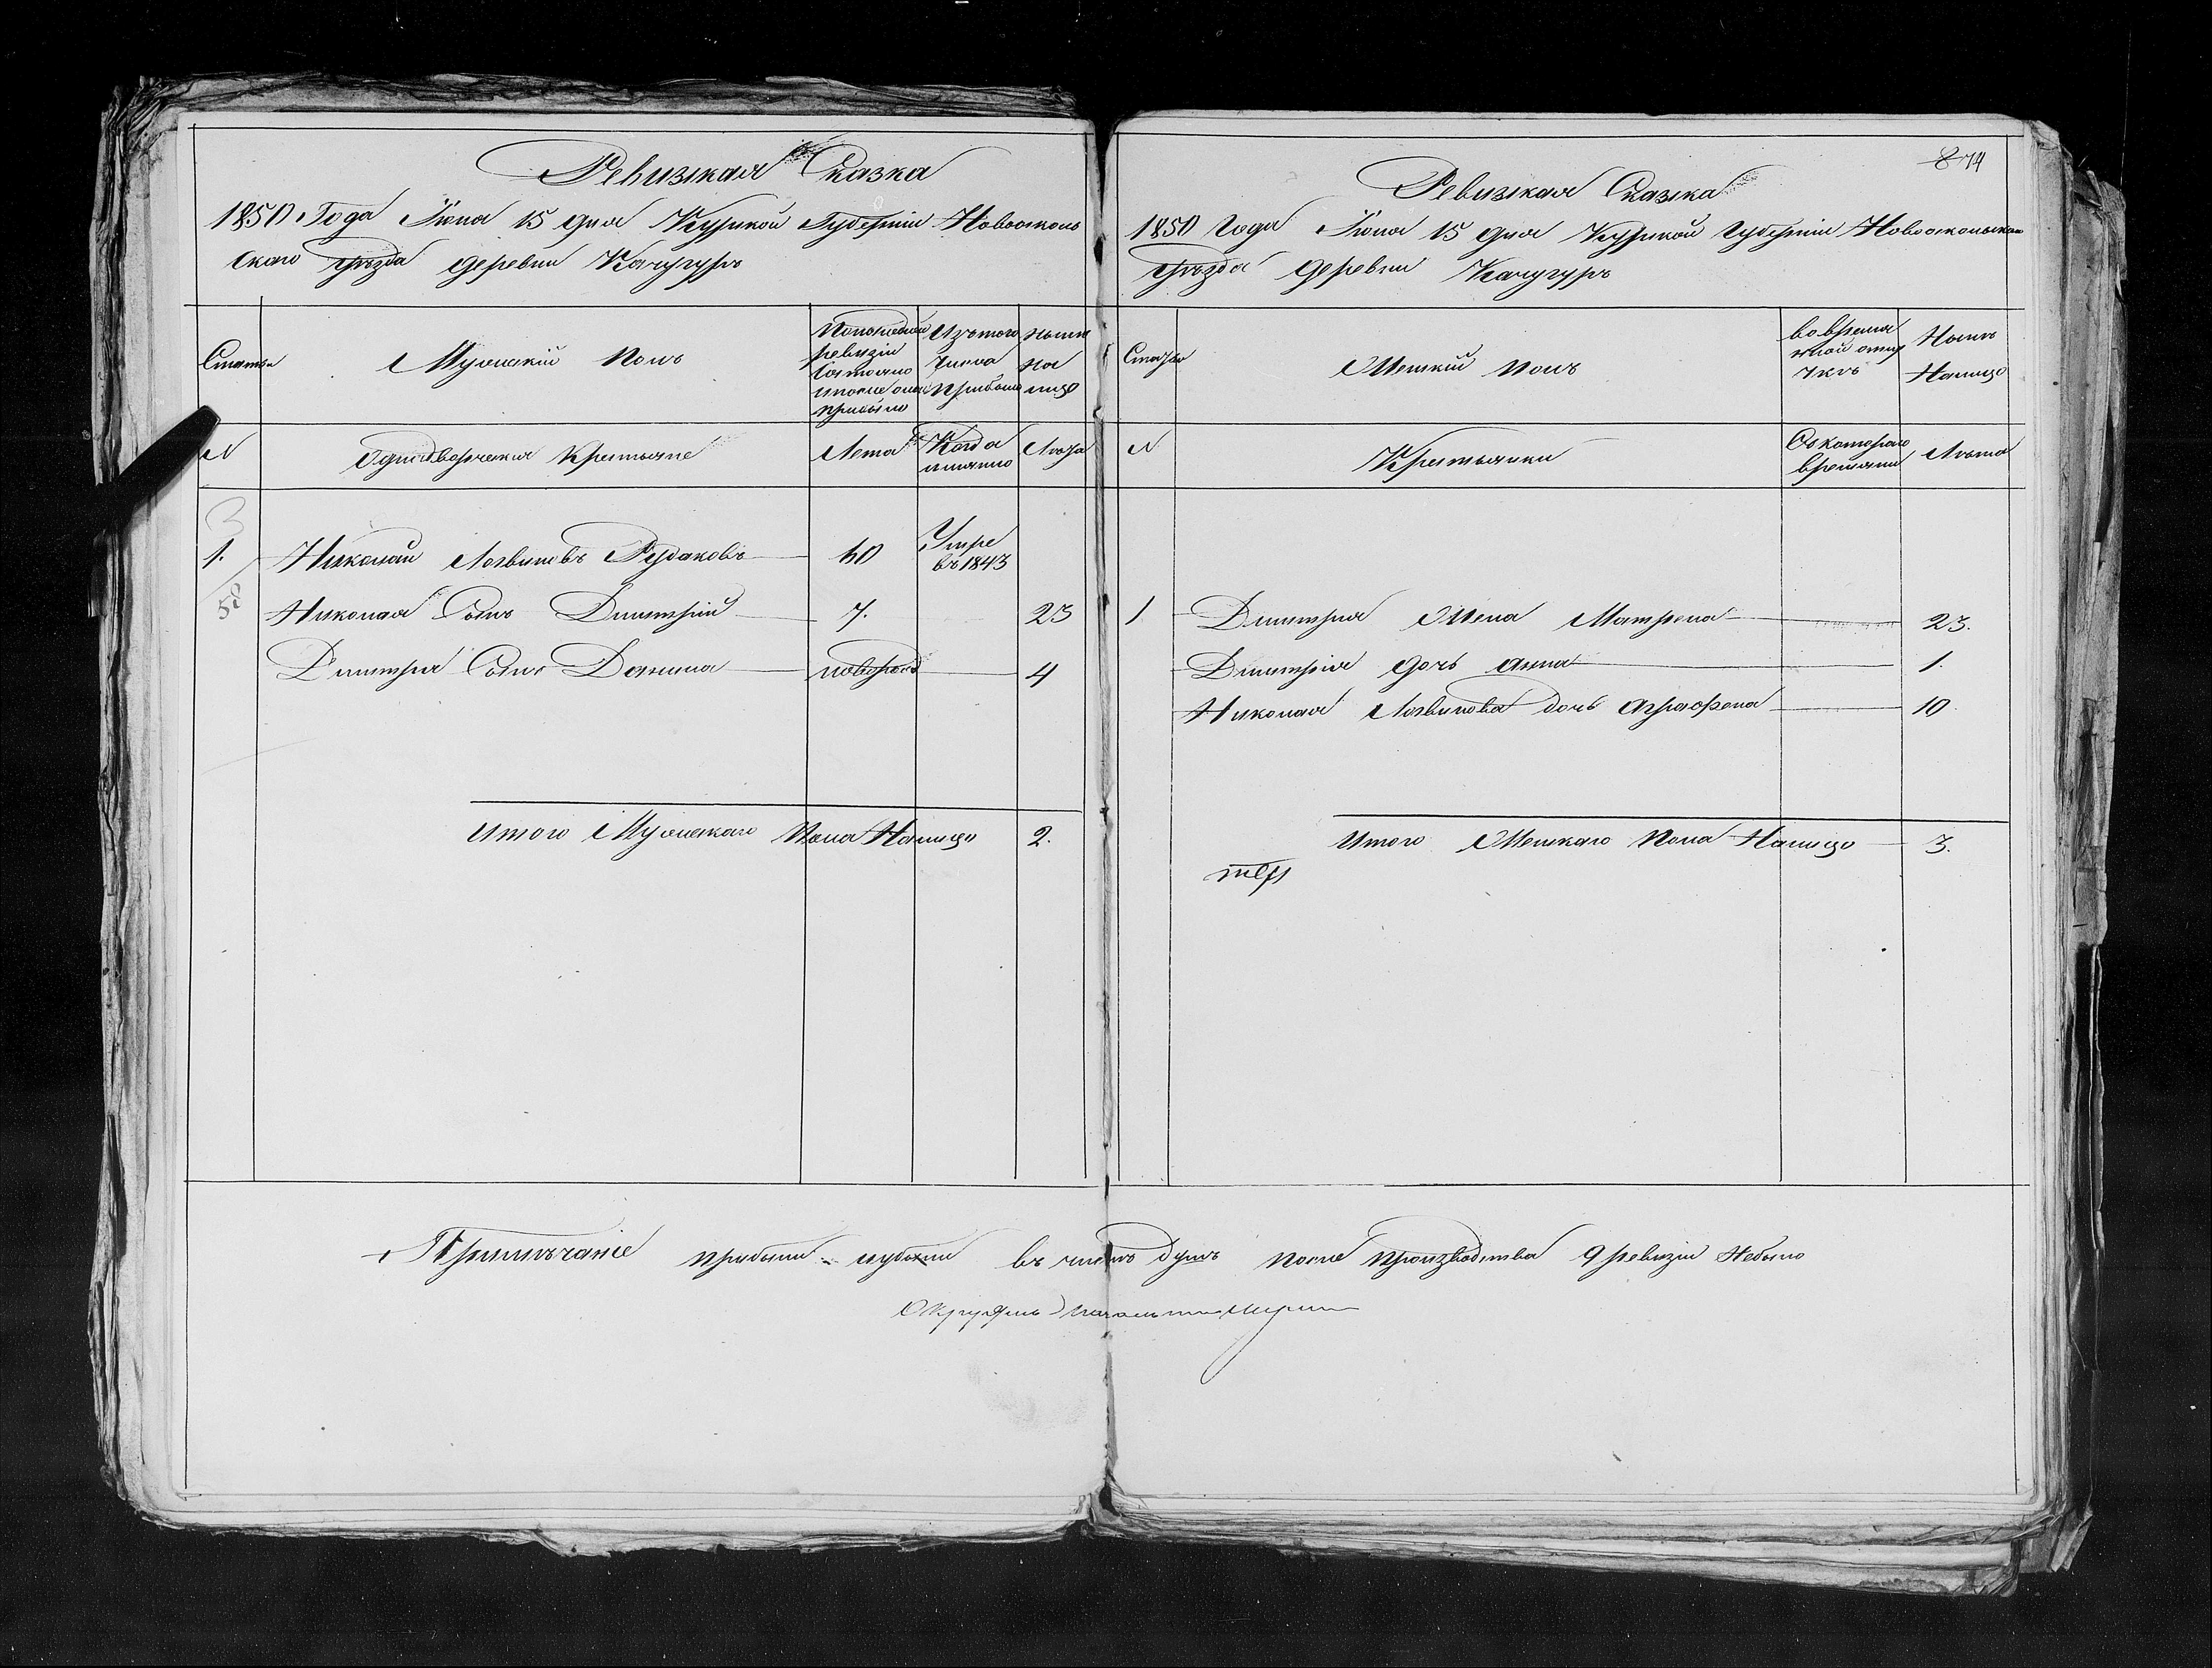 Ревизская Сказка
1850 Года Iюня 15 дня Курской Губернiи Новооскольскаго
уѣзда деревни Качугуръ
Статьи
Мужескiй Полъ
По последней ревизiи состояло и после оной прибыло
Изъ того числа прибыло
Ныне на лицо
N
Однодворческiя Крестьяне
Лета
Когда именно
Лѣта
3
1. Николай Логвиновъ Рудаковъ 40 Умре въ 1843
58
Николая Сынъ Дмитрiй 7. 23
Дмитрiя Сынъ Данила новорожд 4
Итого Мужескаго Пола Налицо 2.
874
Ревизская Сказка
1850 Года Iюня 15 дня Курской Губернiи Новооскольскаго
уѣзда деревни Качугуръ
Статьи
Женскiй Полъ
Во временной отлучкѣ
Ныне Налицо
N
Крестьянки
Съ котораго времени
Лѣта
1 Дмитрiя Жена Матрена 23.
Дмитрiя дочь анна 1.
Николая Логвинова дочь аграфена 10
Итого Женскаго Пола Налицо 3.
Примѣчанiе прибыли и убыли въ числѣ душъ После Производства 9 ревизiи Небыло